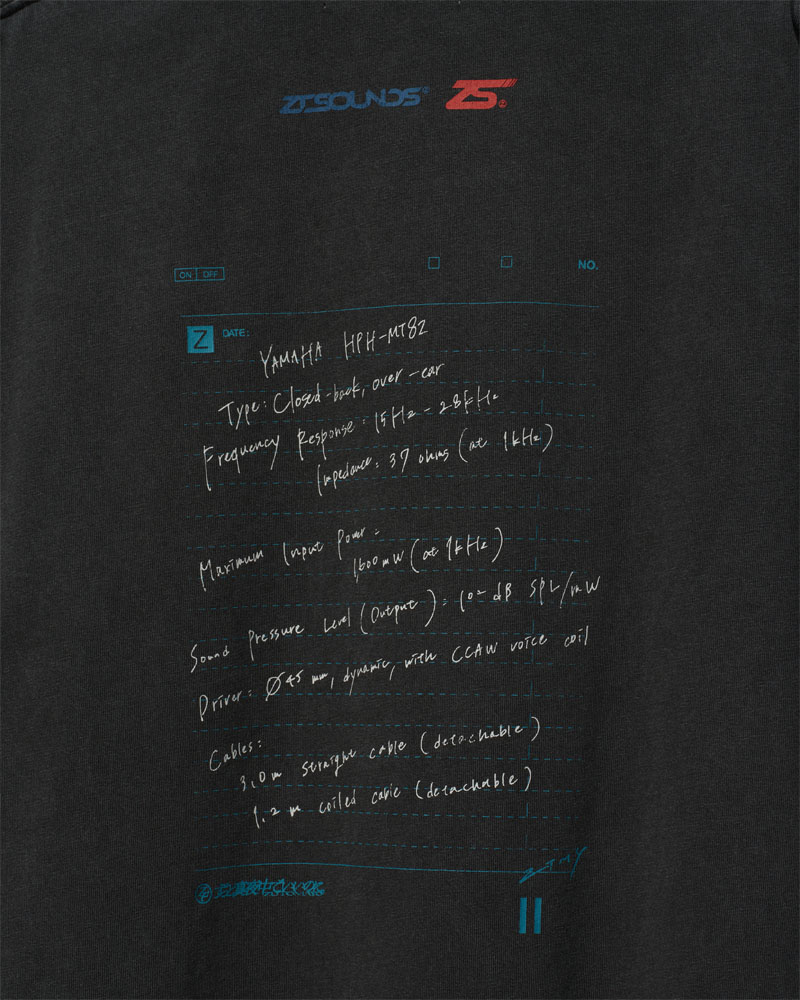 ZTSOUNDS® ZS®
ON OFF NO.
Z DATE:
YAMAHA HPH-MT82
Type: Closed-back, over-ear
Frequency Response: 15Hz - 28kHz
Impedance: 37 ohms (at 1kHz)
Maximum Input Power:
1,600mW (at 1kHz)
Sound Pressure Level (Output): 102 dB SPL/mW
Driver: Ø45 mm, dynamic, with CCAW voice coil
Cables:
3.0m straight cable (detachable)
1.2m coiled cable (detachable)